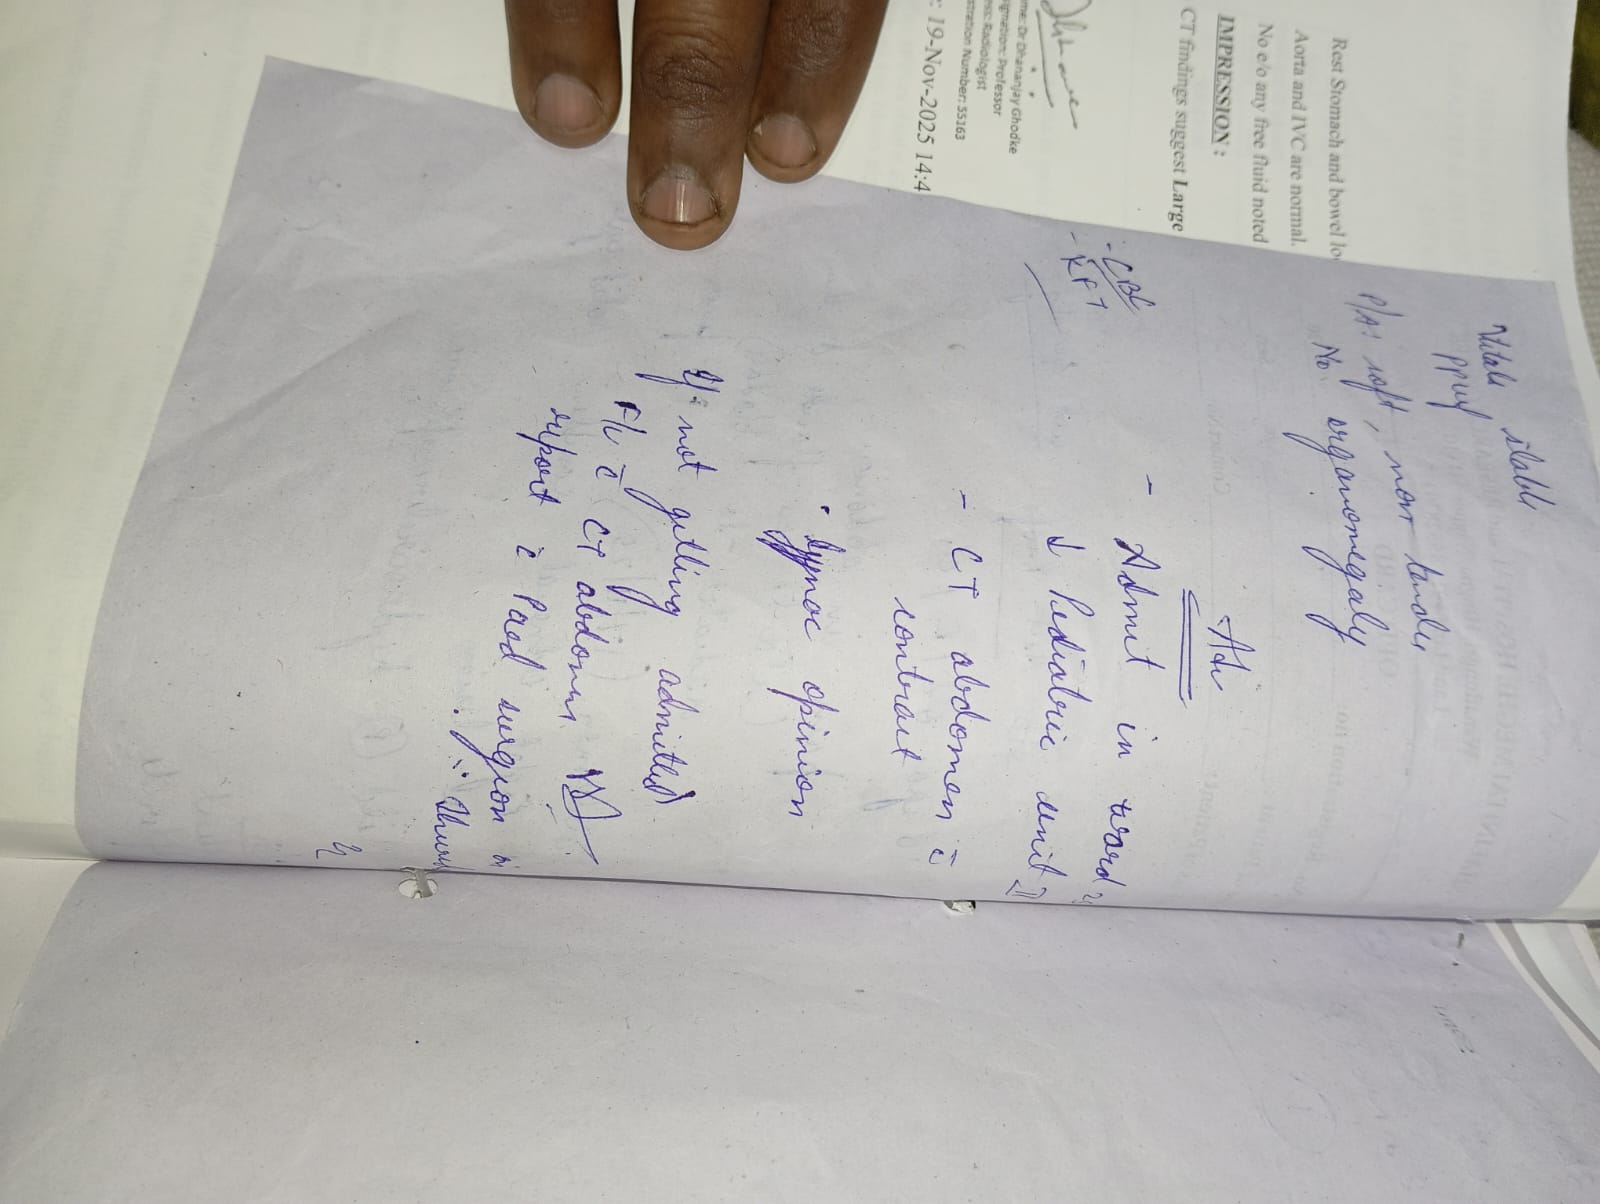 Rest Stomach and bowel lo
Aorta and IVC are normal.
No e/o any free fluid noted
IMPRESSION :
CT findings suggest Large
me: Dr Dhananjay Ghodke
signation: Professor
ess: Radiologist
stration Number: 55163
: 19-Nov-2025 14:4
Vitals stable
P/A: soft, non tender
No organomegaly
- CBC
- KFT
Adv
- Admit in ward
↓ Pediatric unit II
- CT abdomen c̄
contrast
. Gynac opinion
If not getting admitted
F/U c̄ CT abdomen
report c̄ Paed surgeon